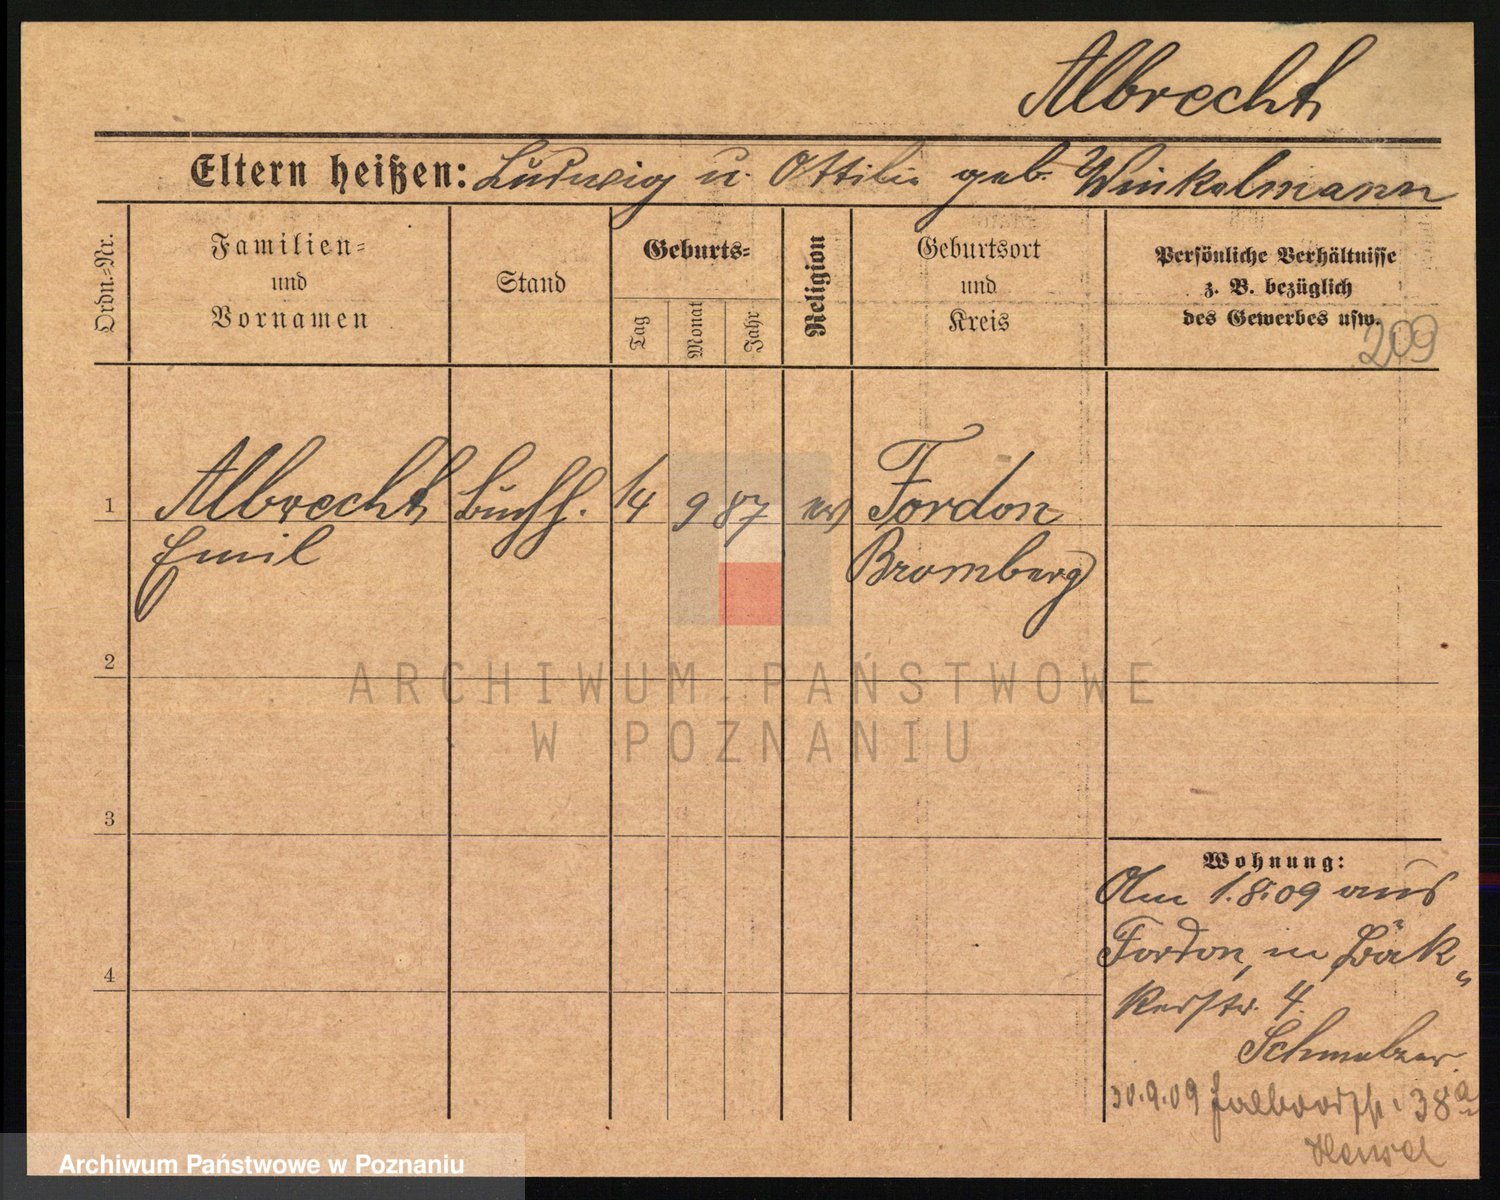 Albrecht
Eltern heißen: Ludwig u. Ottilie geb. Winkelmann
Ordn.=Nr.
Familien=
und
Vornamen
Stand
Geburts=
Tag
Monat
Jahr
Religion
Geburtsort
und
Kreis
Persönliche Verhältnisse
z. B. bezüglich
des Gewerbes usw.
209
1 Albrecht Buchh. 14 9 87 ev Fordon
Emil Bromberg
2
3
4
ARCHIWUM PAŃSTWOWE
W POZNANIU
Wohnung:
Am 1.8.09 aus
Fordon, in Bäk„
kerstr. 4.
Schmelzer
30.9.09 38a
Archiwum Państwowe w Poznaniu